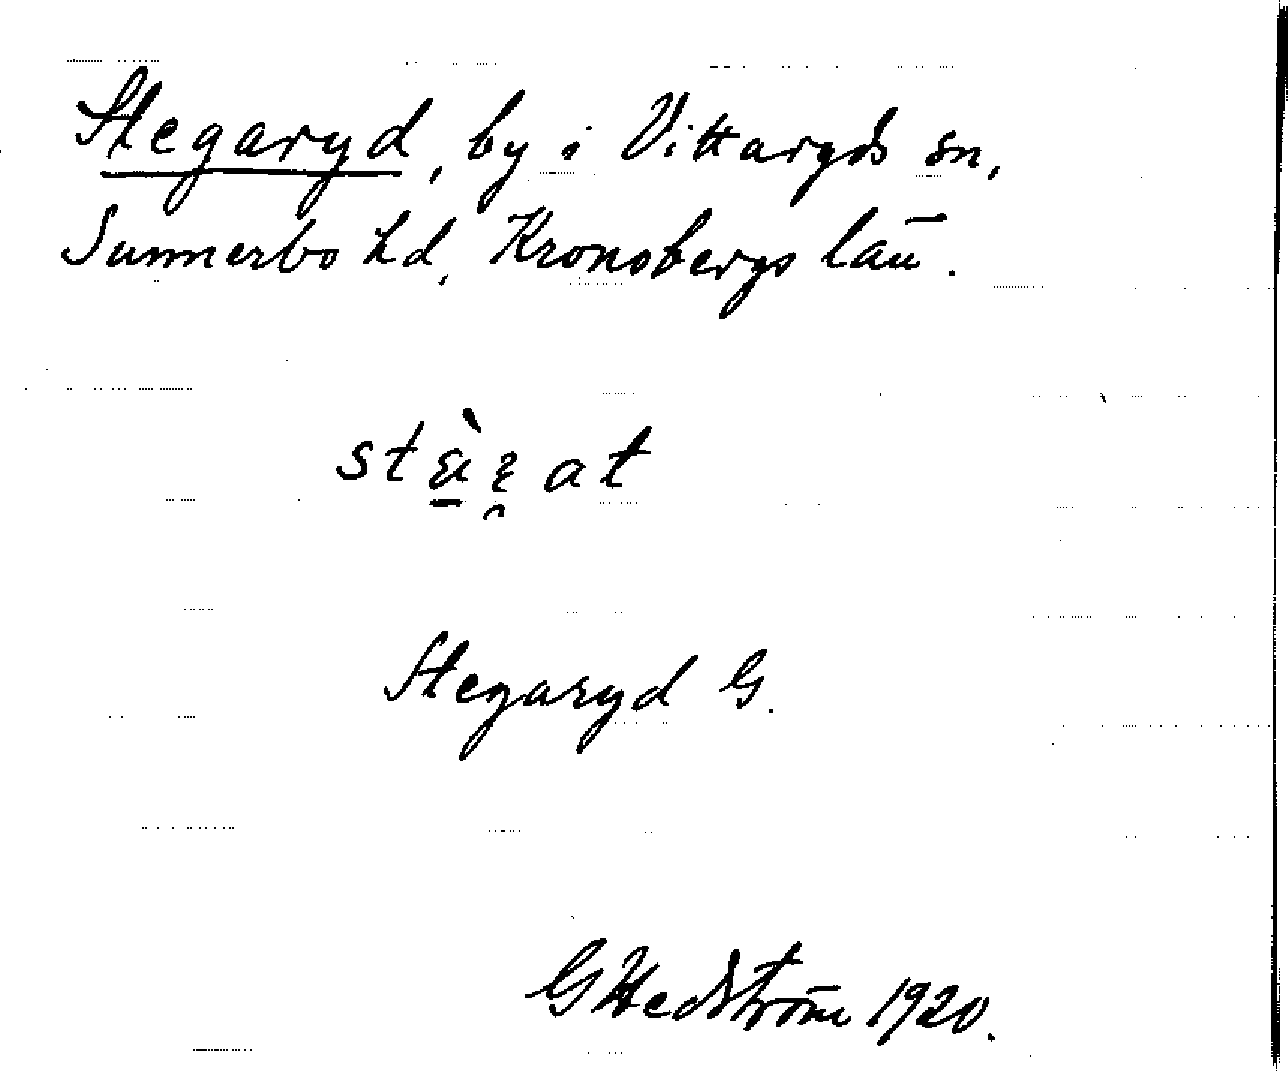 Stegaryd, by i Vittaryds sn,
Sunnerbo hd, Kronobergs län.
Stegaryd G.
G Hedström 1920.